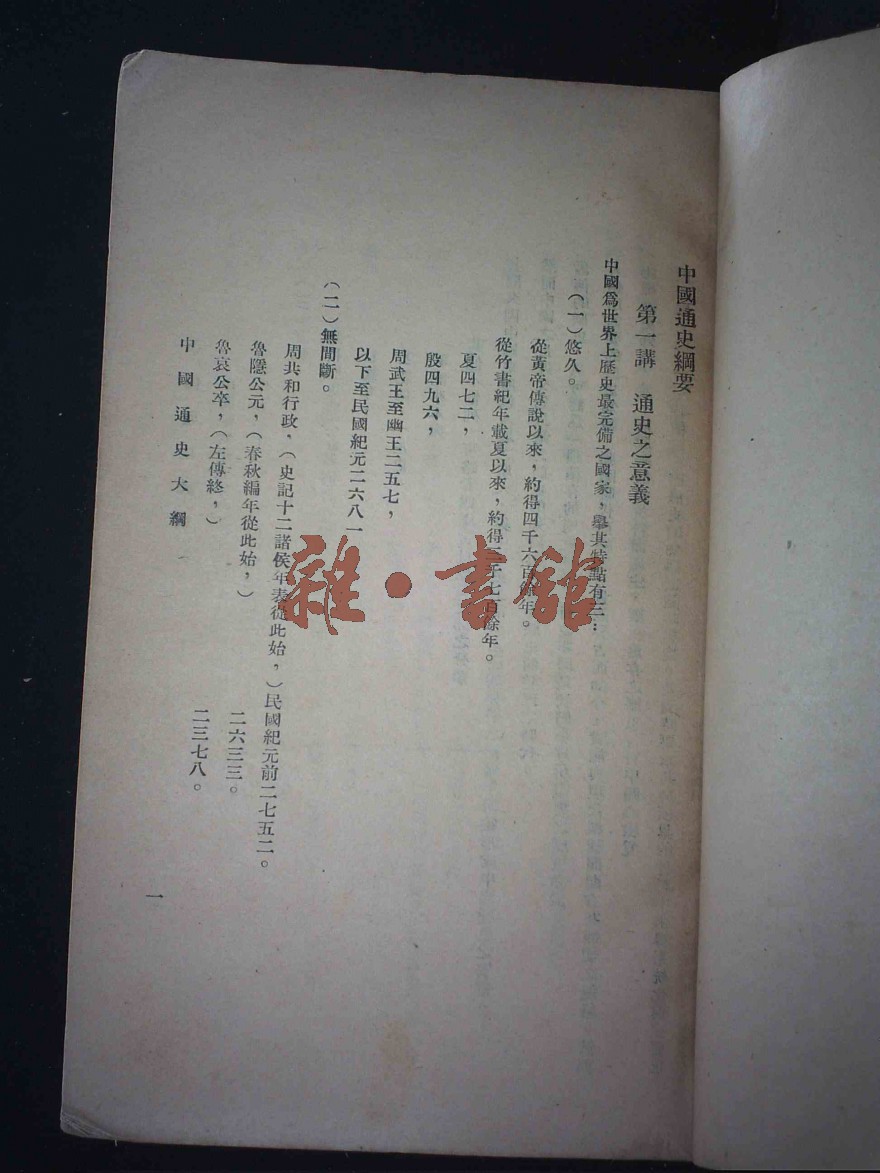 中國通史綱要
第一講　通史之意義
中國爲世界上歷史最完備之國家，舉其特點有三：
（一）悠久。
從黃帝傳說以來，約得四千六百餘年。
從竹書紀年載夏以來，約得三千七百餘年。
夏四七二，
殷四九六，
周武王至幽王二五七，
以下至民國紀元二六八一
（二）無間斷。
周共和行政，（史記十二諸侯年表從此始，）民國紀元前二七五二。
魯隱公元，（春秋編年從此始，）　二六三三。
魯哀公卒，（左傳終，）　二三七八。
中國通史大綱
一
雜·書館